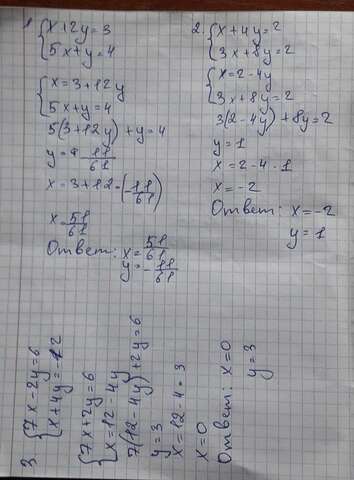 1 { x+12y=3
5x+y=4
{ x=3+12y
5x+y=4
5(3+12y)+y=4
y=-11/61
x=3+12·(-11/61)
x=51/61
Ответ: x=51/61
y=-11/61
2. { x+4y=2
3x+8y=2
{ x=2-4y
3x+8y=2
3(2-4y)+8y=2
y=1
x=2-4·1
x=-2
Ответ: x=-2
y=1
3. { 7x-2y=6
x+4y=-12
{ 7x+2y=6
x=12-4y
7(12-4y)+2y=6
y=3
x=12-4·3
x=0
Ответ: x=0
y=3